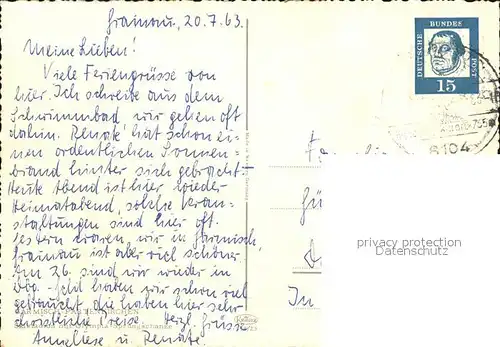 Grainau, 20.7.63.
Meine Lieben!
Viele Feriengrüsse von
hier. Ich schreibe aus dem
Schwimmbad wir gehen oft
dahin. Renate hat schon ei-
nen ordentlichen Sonnen-
brand hinter sich gebracht.
Heute Abend ist hier wieder
Heimatabend, solche Veran-
staltungen sind hier oft.
Gestern waren wir in Garmisch,
Grainau ist aber viel schöner.
Am 26. sind wir wieder in
Geld haben wir schon viel
gebraucht, die haben hier sehr
christliche Preise. Herzl. Grüsse
Anneliese u. Renate
GARMISCH-PARTENKIRCHEN
DEUTSCHE BUNDESPOST
15
8104
privacy protection
Datenschutz
In